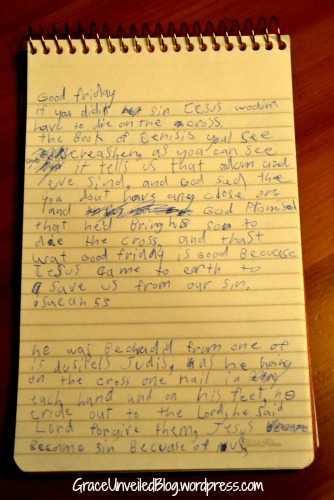 Good friday
if you didnt sin Jesus wodint
have to die on the cross.
the Book of Genisis you see
creashen, as you can see
it tells us that adam and
eve sind, and God sed the
you dout have any close one
land God Promised
that he'd bring his son to
die the cross, and thast
wat Good friday is Good Because
Jesus came to earth to
save us from our sin,
isaeah 53
he was Bechadid from one of
is dusipels Judis, has he hang
on the cross one nail in
each hand and on his feet, he
cride out to the Lord, he said
Lord forgive them, Jesus
Became sin Becuase of us
GraceUnveiledBlog.wordpress.com